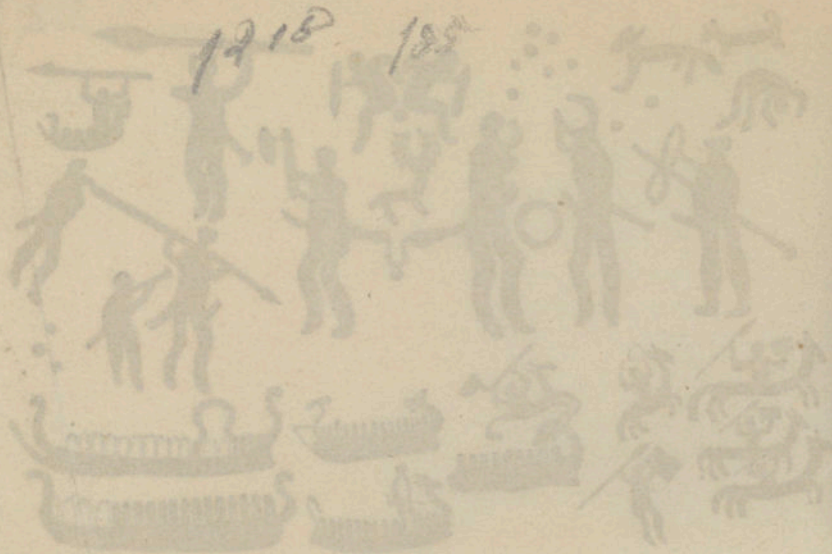 1218 185